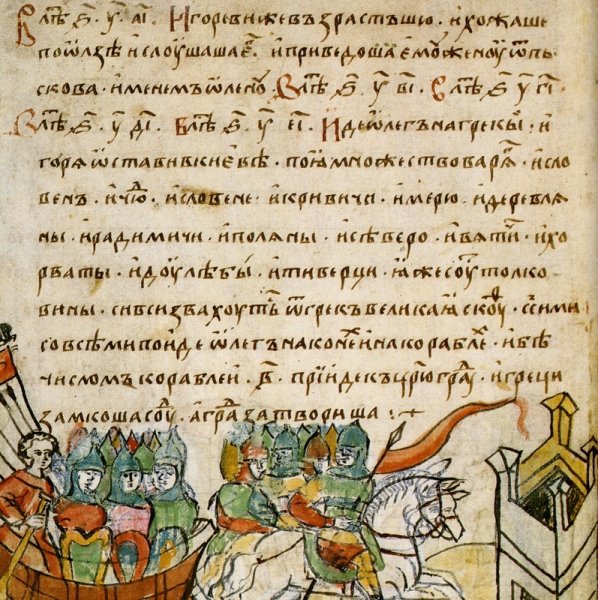 В лѣⷮ ҂ѕ҃ у҃ аі҃ · Игореви же възрастъшю · и хожаше
по ѡлзѣ и слоушаша еⷢ҇ · и приведоша емоу женоу ѿ пь
скова · именемъ ѡленоу · В лѣⷮ ҂ѕ҃ у҃ ві҃ · В лѣⷮ ҂ѕ҃ у҃ гі҃ ·
В лѣⷮ ҂ѕ҃ у҃ ді҃ · В лѣⷮ ҂ѕ҃ у҃ еі҃ · Иде ѡлегъ на грекы · и
горя ѡставив в киевѣ · поꙗ множество варѧⷢ · и сло
венъ · и чюⷣ · и словене · и кривичи · и мерю · и деревлѧ
ны · и радимичи · и полѧны · и сѣверо · и вѧтичи · и хо
рваты · и доулѣбы · и тиверци · ꙗже соуⷮ толко
вины · си вси звахоутьⷭ ѿ грекъ великаꙗ скоуⷴ · с сими
со всѣми поиде ѡлегъ на конеⷯ и на кораблеⷯ · и бѣ
числомъ кораблеи · ҂в҃ · прїиде къ цр҃юграⷣ · и греци
замкоша соуⷣ · а граⷣ затвориша :·